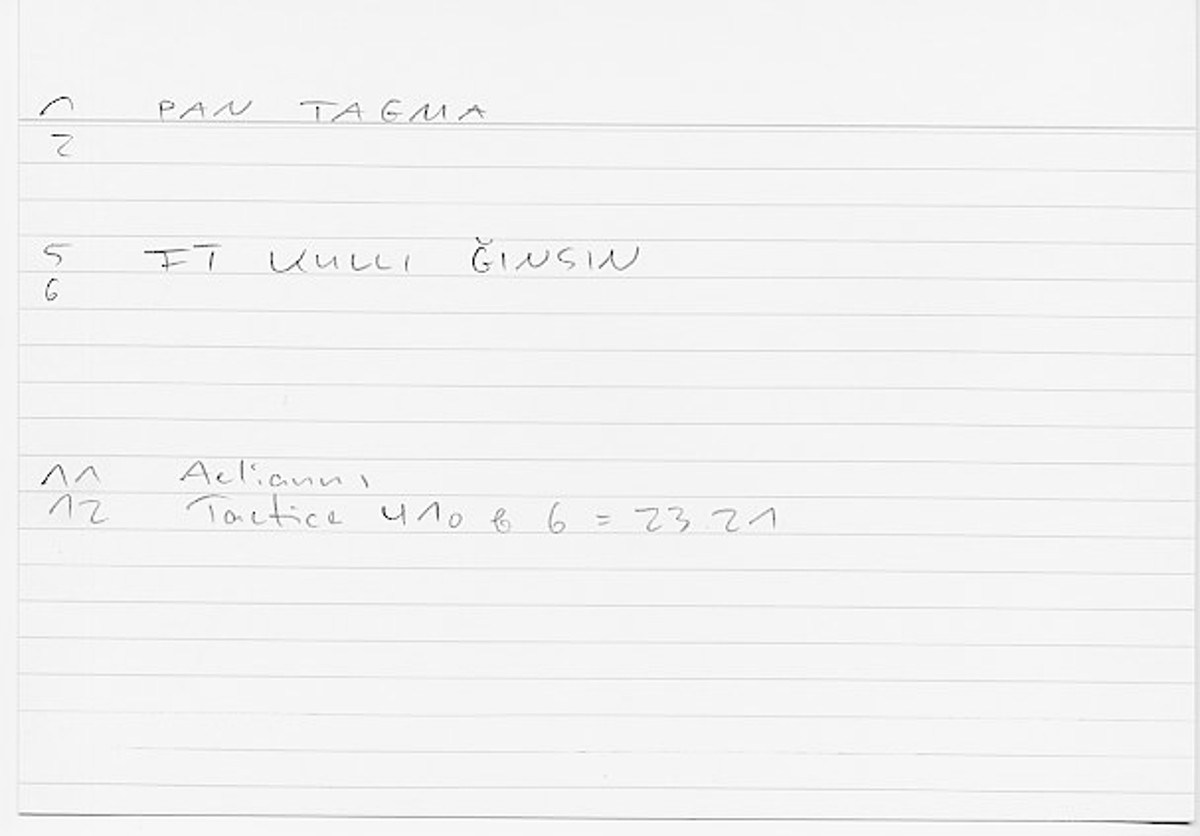 1 PAN TAGMA
2
5 FI KULLI ǦINSIN
6
11 Aelianus
12 Tactica 410 b 6 = 23.21